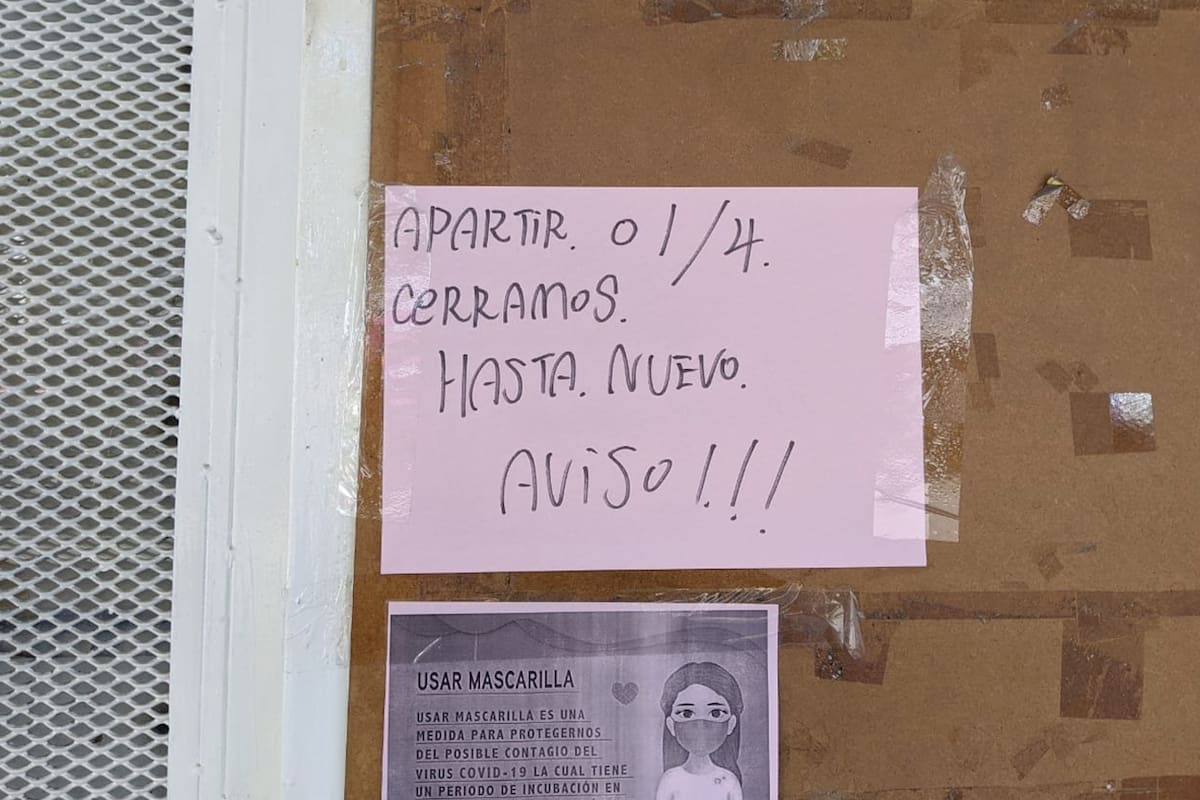 APARTIR. 01/4.
CERRAMOS.
HASTA. NUEVO.
AVISO!!!
USAR MASCARILLA
USAR MASCARILLA ES UNA
MEDIDA PARA PROTEGERNOS
DEL POSIBLE CONTAGIO DEL
VIRUS COVID-19 LA CUAL TIENE
UN PERIODO DE INCUBACIÓN EN